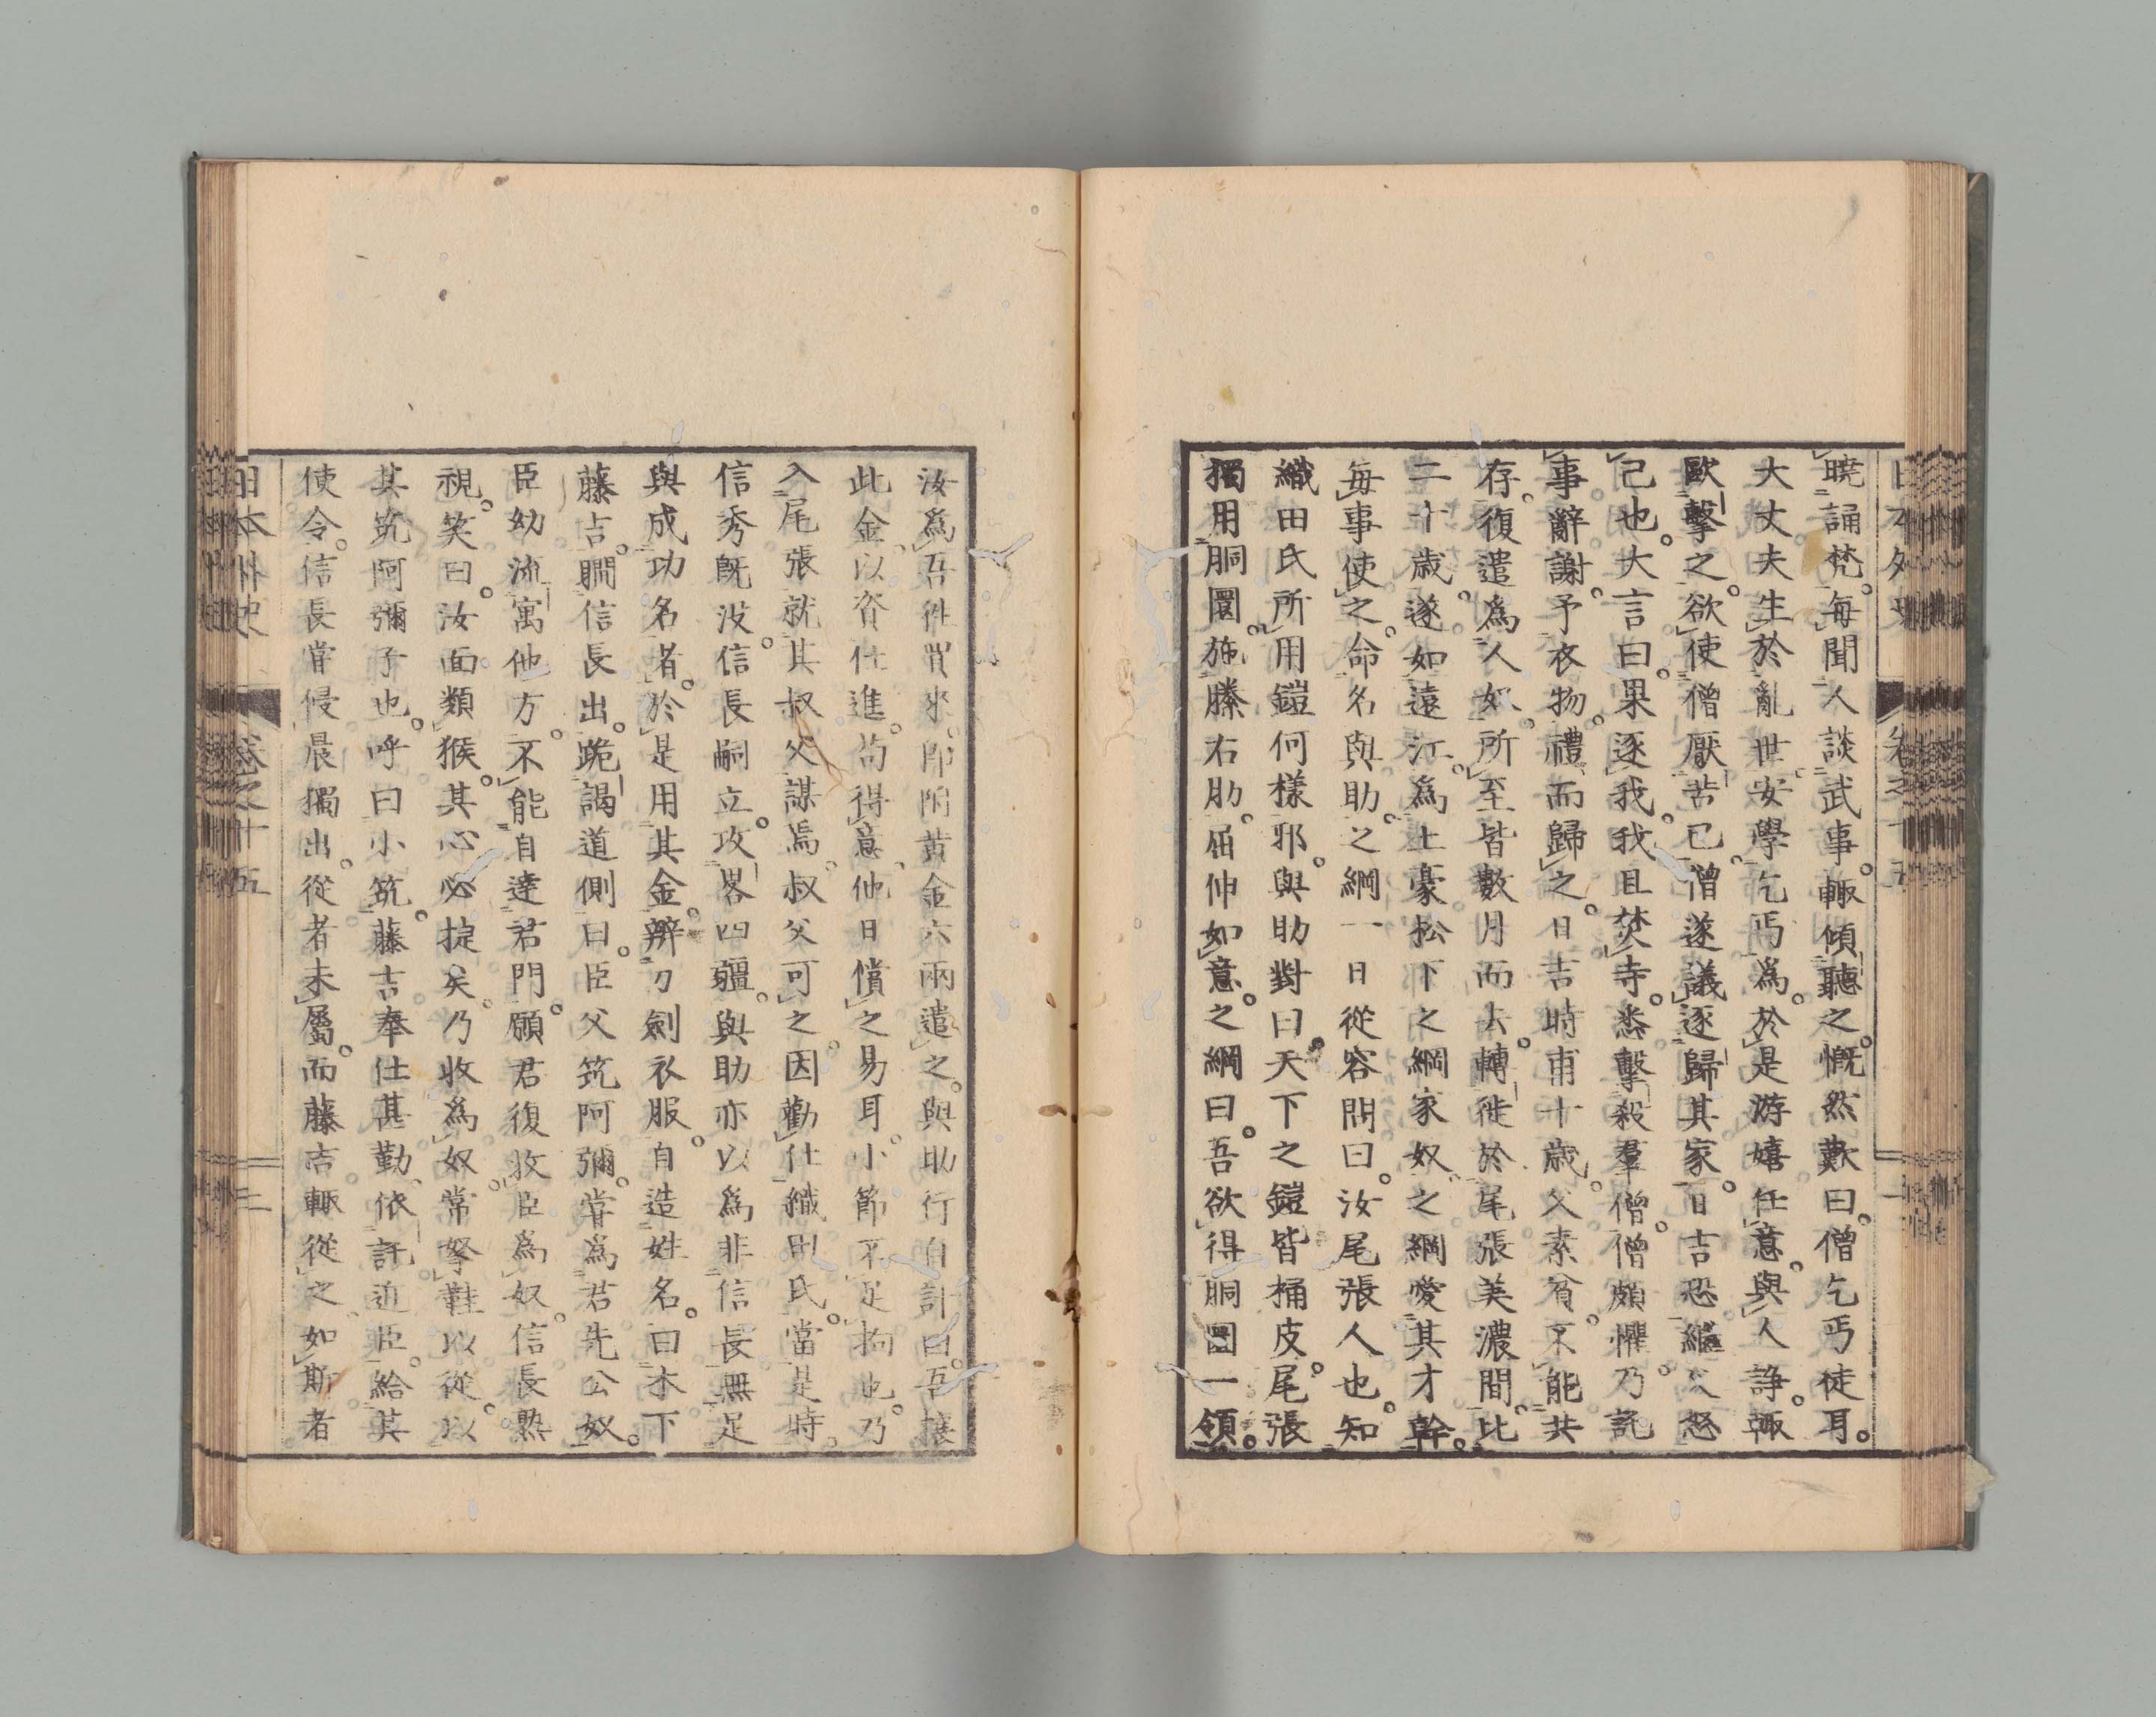 日本外史
卷之十五
曉誦梵。每聞人談武事。輙傾聽之。慨然歎曰。僧乞丐徒耳。
大丈夫生於亂世安學乞丐爲。於是游嬉任意。與人諍。輙
歐擊之。欲使僧厭苦已。僧遂議逐歸其家。日吉恐繼父怒
己也。大言曰。果逐我。我且焚寺。悉擊殺羣僧。僧頗懼。乃託
事辭謝。予衣物。禮而歸之。日吉時甫十歲。父素貧。不能共
存。復遣爲人奴。所至皆數月而去。轉徙於尾張美濃間。比
二十歲。遂如遠江。爲土豪松下之綱家奴。之綱愛其才幹。
每事使之。命名與助。之綱一日從容問曰。汝尾張人也。知
織田氏所用鎧何樣邪。與助對曰。天下之鎧皆桶皮。尾張
獨用胴圍。施縢右肋。屈伸如意。之綱曰。吾欲得胴圍一領。
汝爲吾徃買來。卽附黃金六兩遣之。與助行自計曰。吾攘
此金。以資仕進。苟得意。他日償之易耳。小節不足拘也。乃
入尾張就其叔父謀焉。叔父可之。因勸仕織田氏。當是時。
信秀既沒。信長嗣立。攻畧四疆。與助亦以爲非信長無足
與成功名者。於是用其金。辨刀劍衣服。自造姓名。曰木下
藤吉。瞷信長出。跪謁道側曰。臣父筑阿彌。嘗爲君先公奴。
臣幼流寓他方。不能自達君門。願君復收臣爲奴。信長熟
視。笑曰。汝面類猴。其心必捷矣。乃收爲奴。常拏鞋以從。以
其筑阿彌子也。呼曰小筑。藤吉奉仕甚勤。依託近臣。給其
使令。信長嘗侵晨獨出。從者未屬。而藤吉輙從之。如斯者
日本外史
卷之十五
三